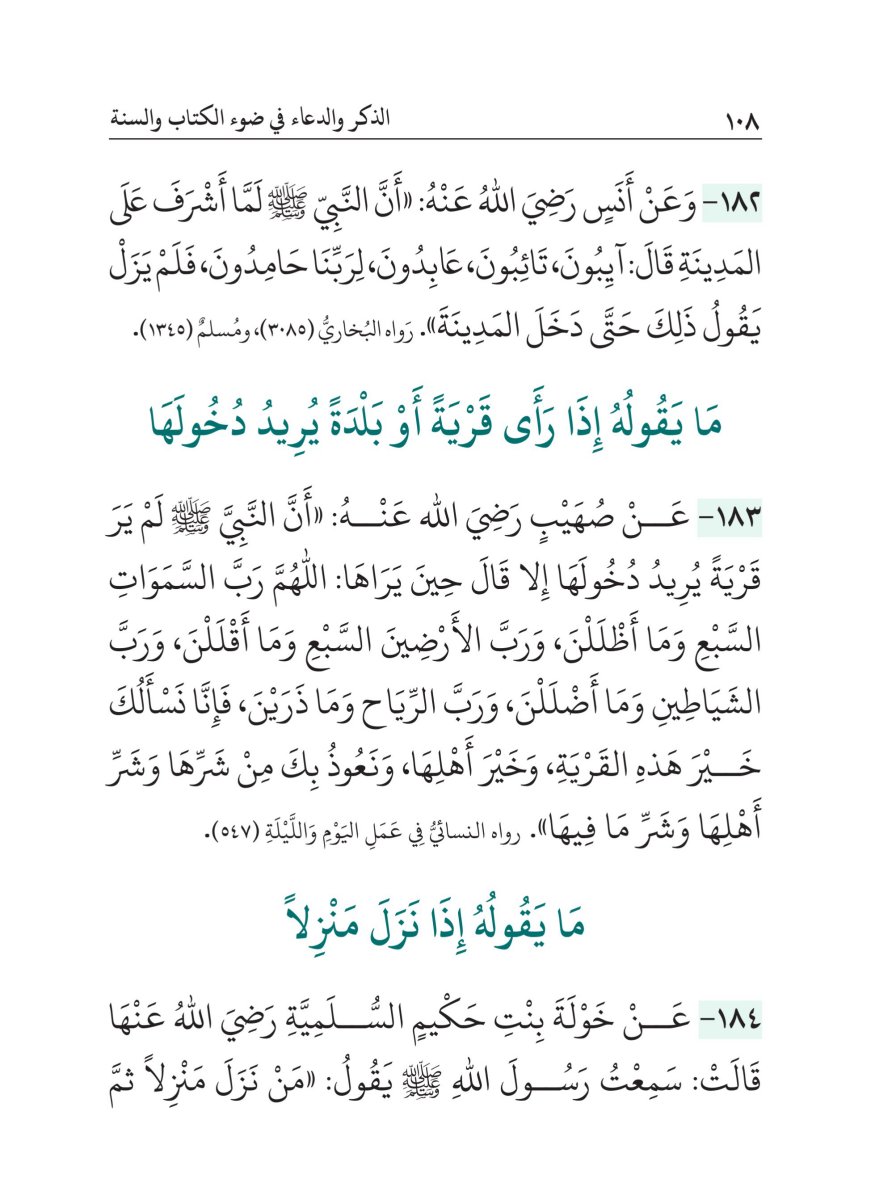 ١٠٨ الذكر والدعاء في ضوء الكتاب والسنة
١٨٢- وَعَنْ أَنَسٍ رَضِيَ اللهُ عَنْهُ: «أَنَّ النَّبِيّ ﷺ لَمَّا أَشْرَفَ عَلَى
المَدِينَةِ قَالَ: آيِبُونَ، تَائِبُونَ، عَابِدُونَ، لِرَبِّنَا حَامِدُونَ، فَلَمْ يَزَلْ
يَقُولُ ذَلِكَ حَتَّى دَخَلَ المَدِينَةَ». رَواه البُخاريُّ (٣٠٨٥)، ومُسلمٌ (١٣٤٥).
مَا يَقُولُهُ إِذَا رَأَى قَرْيَةً أَوْ بَلْدَةً يُرِيدُ دُخُولَهَا
١٨٣- عَـــنْ صُهَيْبٍ رَضِيَ الله عَنْـــهُ: «أَنَّ النَّبِيَّ ﷺ لَمْ يَرَ
قَرْيَةً يُرِيدُ دُخُولَهَا إِلا قَالَ حِينَ يَرَاهَا: اللَّهُمَّ رَبَّ السَّمَوَاتِ
السَّبْعِ وَمَا أَظْلَلْنَ، وَرَبَّ الأَرْضِينَ السَّبْعِ وَمَا أَقْلَلْنَ، وَرَبَّ
الشَيَاطِينِ وَمَا أَضْلَلْنَ، وَرَبَّ الرِّيَاحِ وَمَا ذَرَيْنَ، فَإِنَّا نَسْأَلُكَ
خَـــيْرَ هَذهِ القَرْيَةِ، وَخَيْرَ أَهْلِهَا، وَنَعُوذُ بِكَ مِنْ شَرِّهَا وَشَرِّ
أَهْلِهَا وَشَرِّ مَا فِيهَا». رواه النسائيُّ فِي عَمَلِ اليَوْمِ وَاللَّيْلَةِ (٥٤٧).
مَا يَقُولُهُ إِذَا نَزَلَ مَنْزِلاً
١٨٤- عَـــنْ خَوْلَةَ بِنْتِ حَكْيمٍ السُّـــلَمِيَّةِ رَضِيَ اللهُ عَنْهَا
قَالَتْ: سَمِعْتُ رَسُـــولَ اللهِ ﷺ يَقُولُ: «مَنْ نَزَلَ مَنْزِلاً ثمَّ